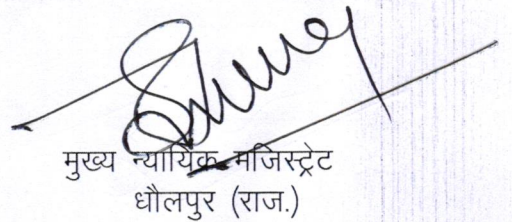 मुख्य न्यायिक मजिस्ट्रेट
धौलपुर (राज.)